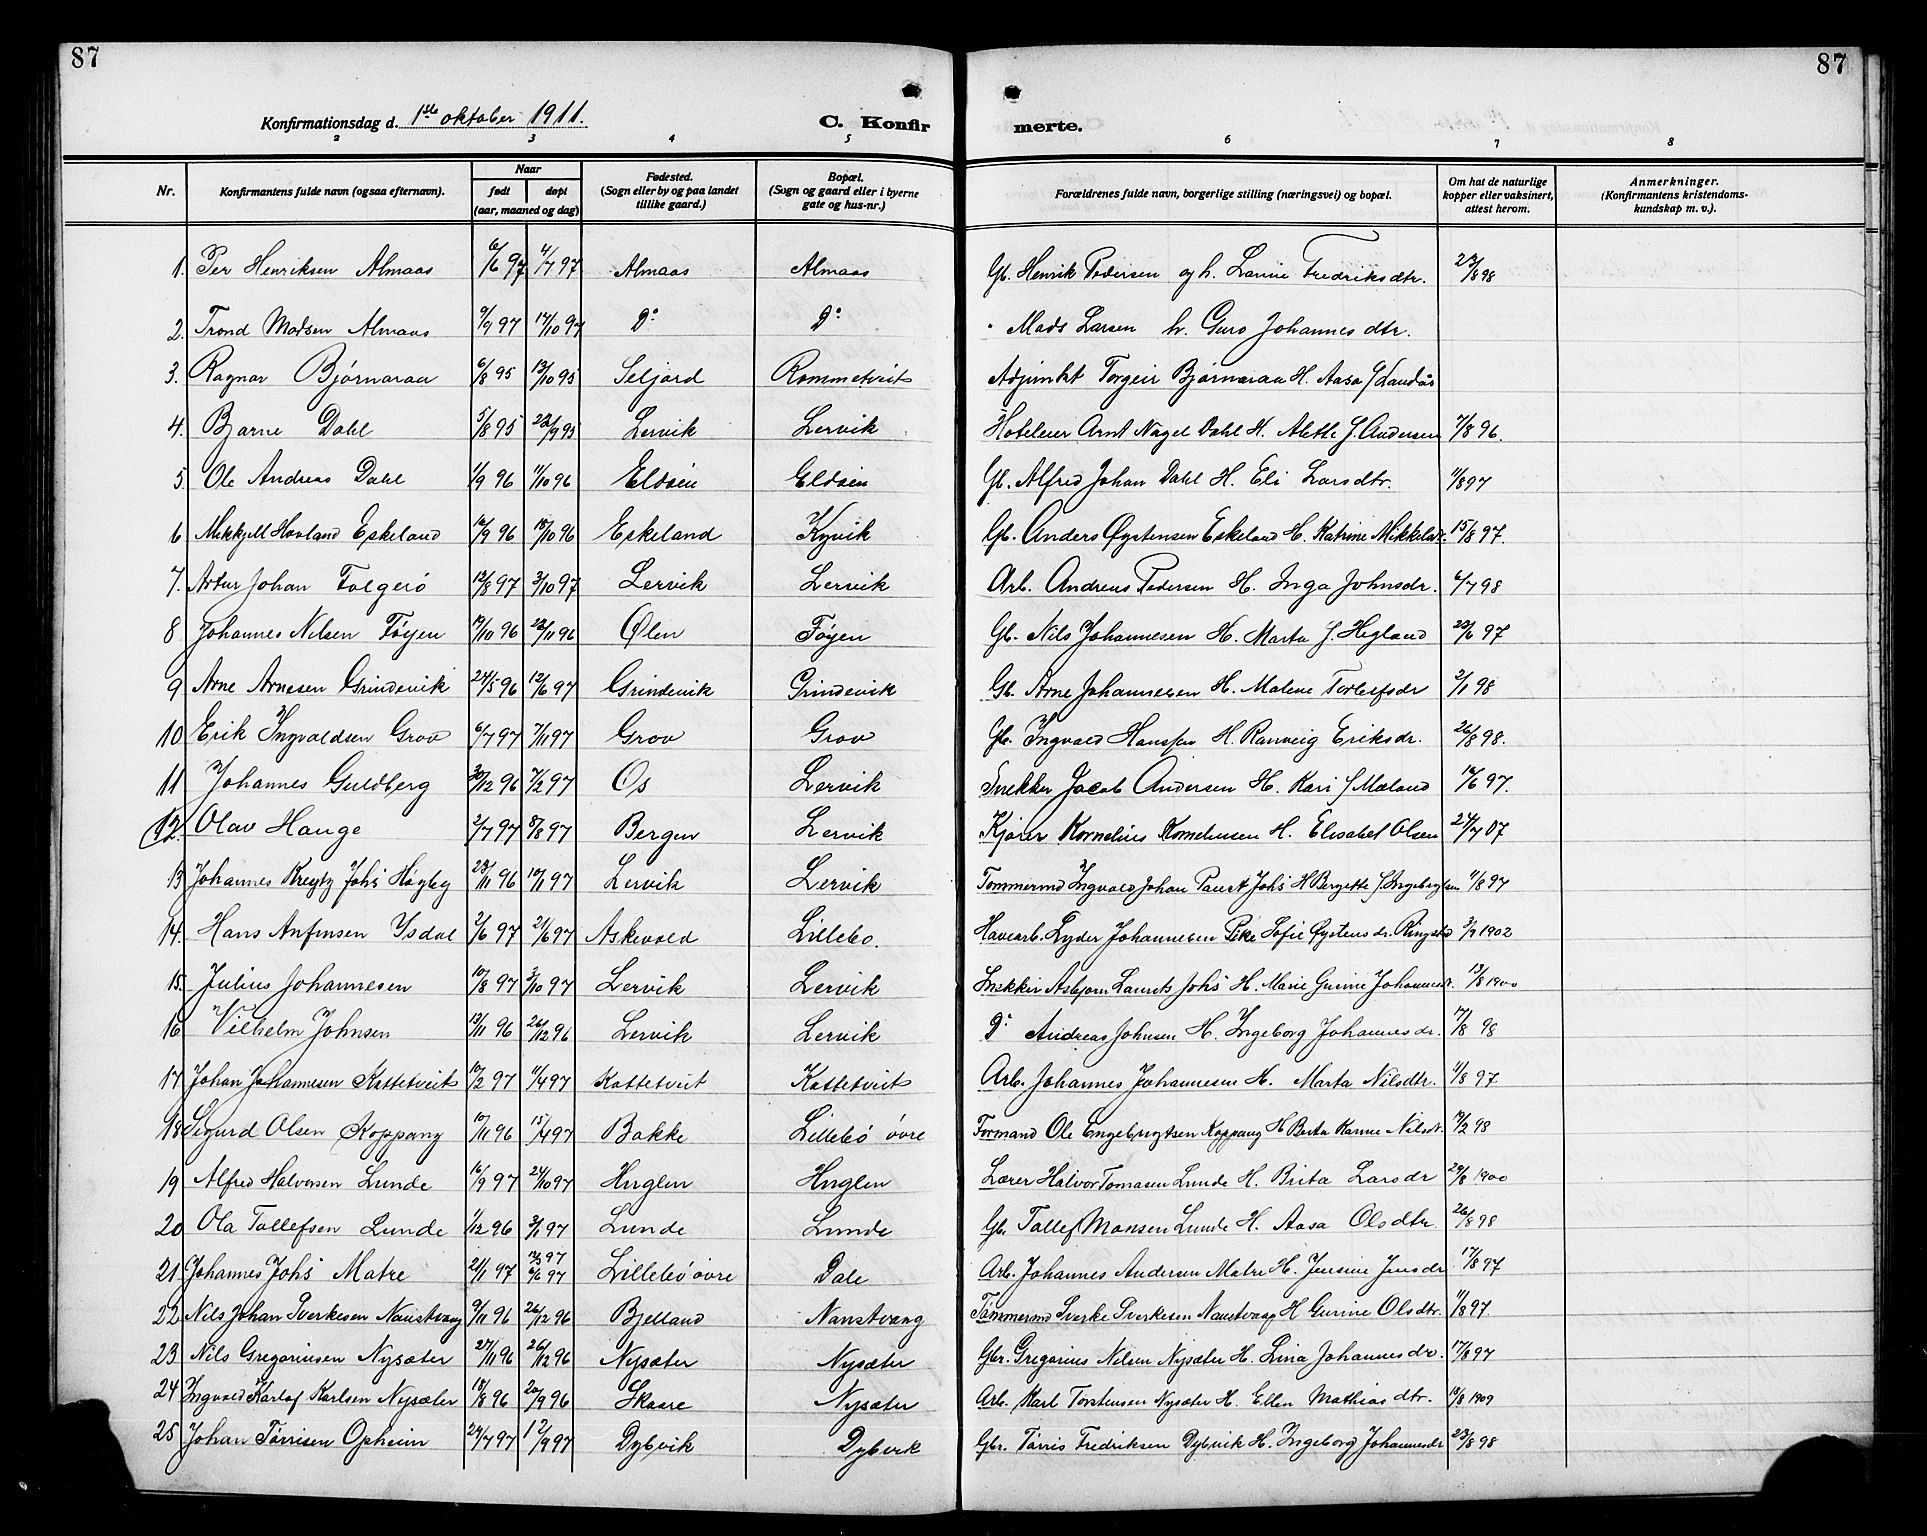 87
87
Konfirmationsdag d. 1ste oktober 1911.
C. Konfirmerte.
2 3 4 5 6 7 8
Nr. Konfirmantens fulde navn (ogsaa efternavn). Naar født døpt (aar, maaned og dag) Fødested. (Sogn eller by og paa landet tillike gaard.) Bopæl. (Sogn og gaard eller i byerne gate og hus-nr.) Forældrenes fulde navn, borgerlige stilling (næringsvei) og bopæl. Om hat de naturlige kopper eller vaksinert, attest herom. Anmerkninger. (Konfirmantens kristendomskundskap m. v.).
1. Per Henriksen Almaas 6/6 97 4/7 97 Almaas Almaas Gb. Henrik Pedersen og h. Larine Fredriksdtr. 23/8 98
2. Trond Madsen Almaas 9/9 97 17/10 97 Do Do " Mads Larsen h. Guro Johannesdtr.
3. Ragnar Bjørnaraa 6/8 95 13/10 95 Seljord Rommetveit Adjunkt Torgeir Bjørnaraa H. Aasa f Landås
4. Bjarne Dahl 5/8 95 22/9 95 Lervik Lervik Hoteleier Arnt Nagel Dahl H. Alette f. Andersen 7/8 96.
5. Ole Andreas Dahl 1/9 96 11/10 96 Eldøien Eldøien Gb. Alfred Johan Dahl H. Eli Larsdtr. 11/8 97
6 Mikkjell Hovland Eskeland 12/9 96 18/10 96 Eskeland Kyvik Gb. Anders Øystensen Eskeland H. Katrine Mikkelsdr. 15/8 97.
7. Artur Johan Folgerö 13/8 97 3/10 97 Lervik Lervik Arb. Andreas Pedersen H. Inga Johnsdr. 6/7 98
8 Johannes Nilsen Føyen 19/10 96 22/11 96 Ølen Føyen Gb. Nils Johannesen H. Marta f. Hegland 23/6 97
9 Arne Arnesen Grindevik 24/5 96 12/6 97 Grindevik Grindevik Gb. Arne Johannesen H. Malene Torleifsdr 2/1 98
10 Erik Ingvaldsen Grov 6/7 97 7/11 97 Grov Grov Gb. Ingvald Hanssen H. Ranveig Eriksdr. 26/8 98.
11 Johannes Guldberg 30/12 96 7/2 97 Os Lervik Snekker Jacob Andersen H. Kari f Mæland 16/6 97.
12. Olav Hauge 2/7 97 8/8 97 Bergen Lervik Kjører Kornelius Kornelinsen H. Elisabet Olsen 24/7 07
13 Johannes Kreytz Johs Høyby 23/11 96 10/1 97 Lervik Lervik Tømmermd Ingvald Johan Johs H Bergette f Ingebrigtsen 11/8 97
14. Hans Anfinsen Ysdal 2/6 97 21/6 97 Askevold Lillebo. Havearb. Lyder Johannesen Sofie Øystensdr. Ringstø 3/9 1902
15. Julius Johannesen 10/8 97 3/10 97 Lervik Lervik Snekker Asbjørn Laurits Johs H. Marie Gurine Johannesdr. 13/8 1900
16 Vilhelm Johnsen 13/11 96 26/12 96 Lervik Lervik Do Andreas Johnsen H. Ingeborg Johannesdr. 17/8 98
17 Johan Johannesen Kattetveit 10/2 97 11/4 97 Kattetveit Kattetveit Arb. Johannes Johannesen H. Marta Nilsdtr. 11/8 97.
18 Sigurd Olsen Koppang 10/11 96 15/4 97 Bakke Lillebö övre Formand Ole Engebrigtsen Koppang H Berta Karine Nilsdr. 19/2 98
19 Alfred Halvorsen Lunde 16/9 97 24/10 97 Huglen Huglen Lærer Halvor Tomasen Lunde H. Brita Larsdr 29/8 1900
20 Ola Tollefsen Lunde 1/12 96 3/1 97 Lunde Lunde Gb. Tollef Monsen Lunde H. Aasa Olsdtr 26/8 98
21 Johannes Johs Matre 21/1 97 12/3 97 6/6 97 Lillebö övre Dale Arb. Johannes Andersen Matre H. Jensine Jensdr 17/8 97
22 Nils Johan Sverkesen Naustvaag 9/11 96 26/12 96 Bjelland Naustvaag Tømmermd Sverke Sverkesen Naustvaag H Gurine Olsdtr. 11/8 97.
23 Nils Gregoriusen Nysæter 27/11 96 26/12 96 Nysæter Nysæter Gbr. Gregorius Nilsen Nysæter H. Lina Johannesdr. 17/8 97
24 Ingvald Karlof Karlsen Nysæter 18/8 96 20/9 96 Skaare Nysæter Arb. Karl Torstensen Nysæter H. Ellen Mathiasdtr. 18/8 1909
25 Johan Tørrisen Opheim 29/7 97 12/9 97 Dybvik Dybvik Gbr. Tørris Fredriksen Dybvik H. Ingeborg Johannesdr 23/8 98